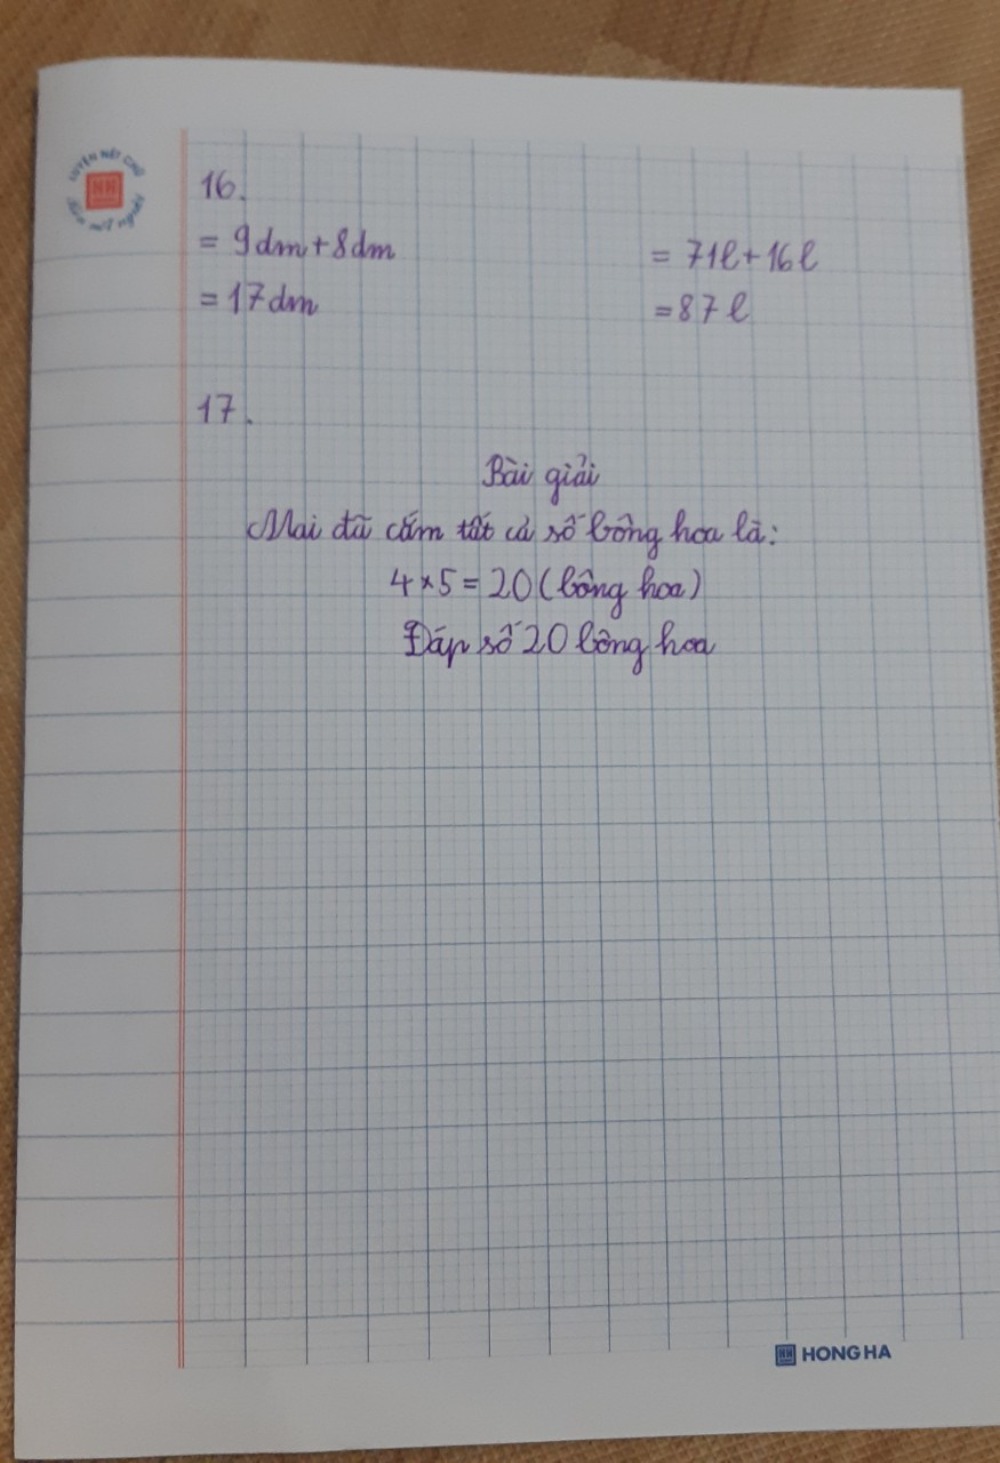 LUYỆN NÉT CHỮ
HH
Rèn nết người
16.
= 9dm + 8dm
= 17dm
= 71l + 16l
= 87l
17.
Bài giải
Mai đã cắm tất cả số bông hoa là:
4 × 5 = 20 (bông hoa)
Đáp số 20 bông hoa
HH HONG HA